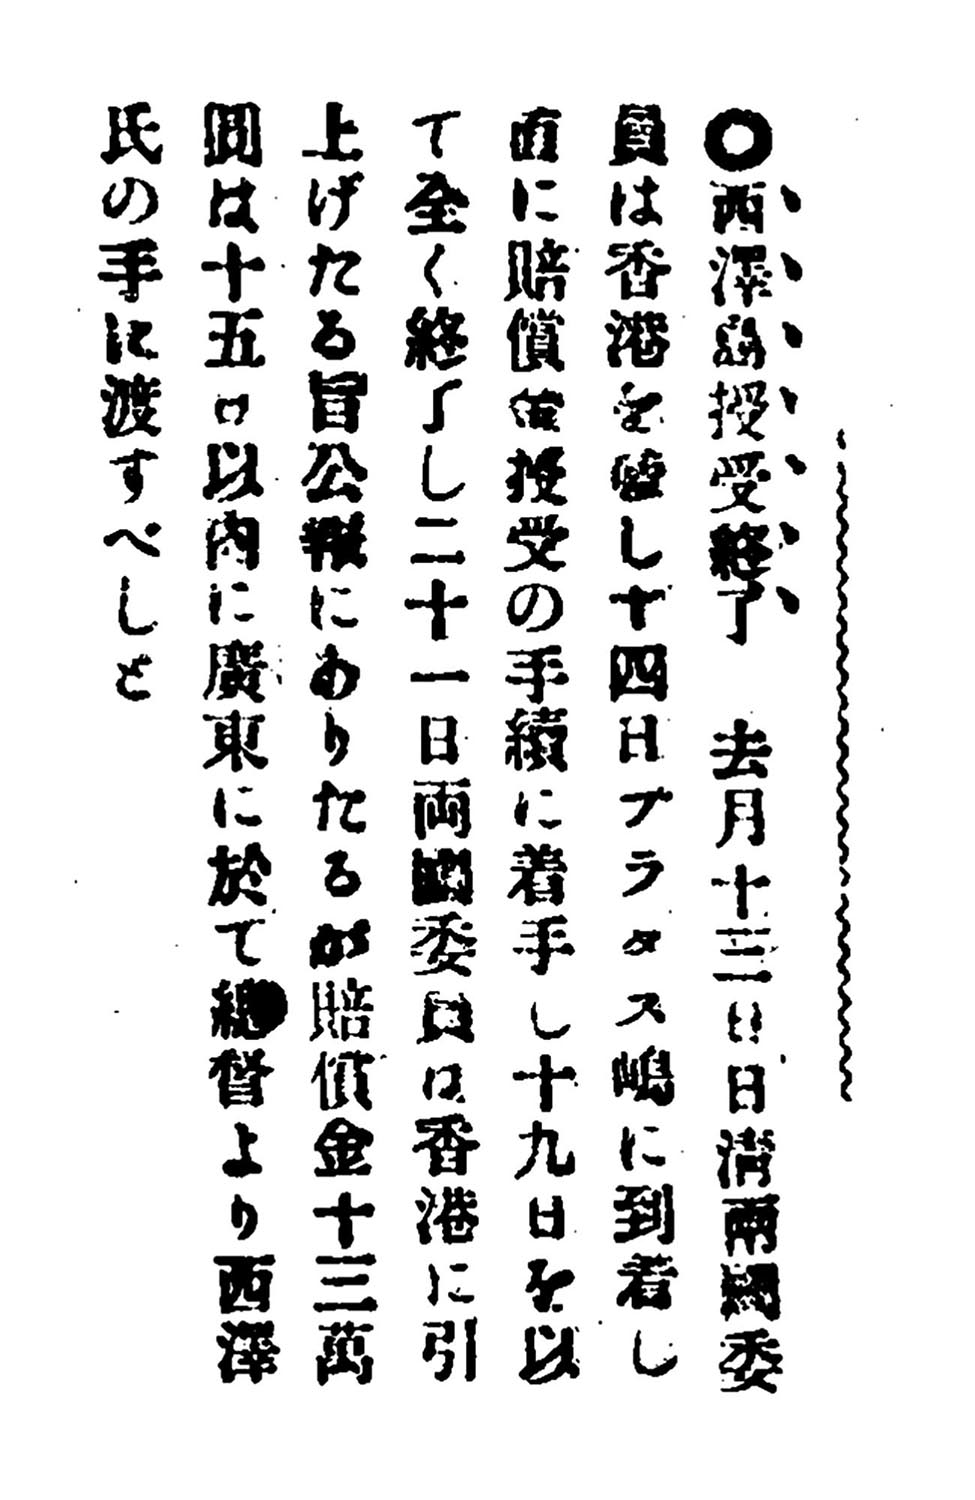 〇西澤島授受終了　去月十三日日淸兩國委
員は香港を發し十四日プラタス嶋に到着し
直に賠償並授受の手續に着手し十九日を以
て全く終了し二十一日両國委員は香港に引
上げたる旨公報にありたるが賠償金十三萬
圓は十五日以內に廣東に於て總督より西澤
氏の手に渡すべしと